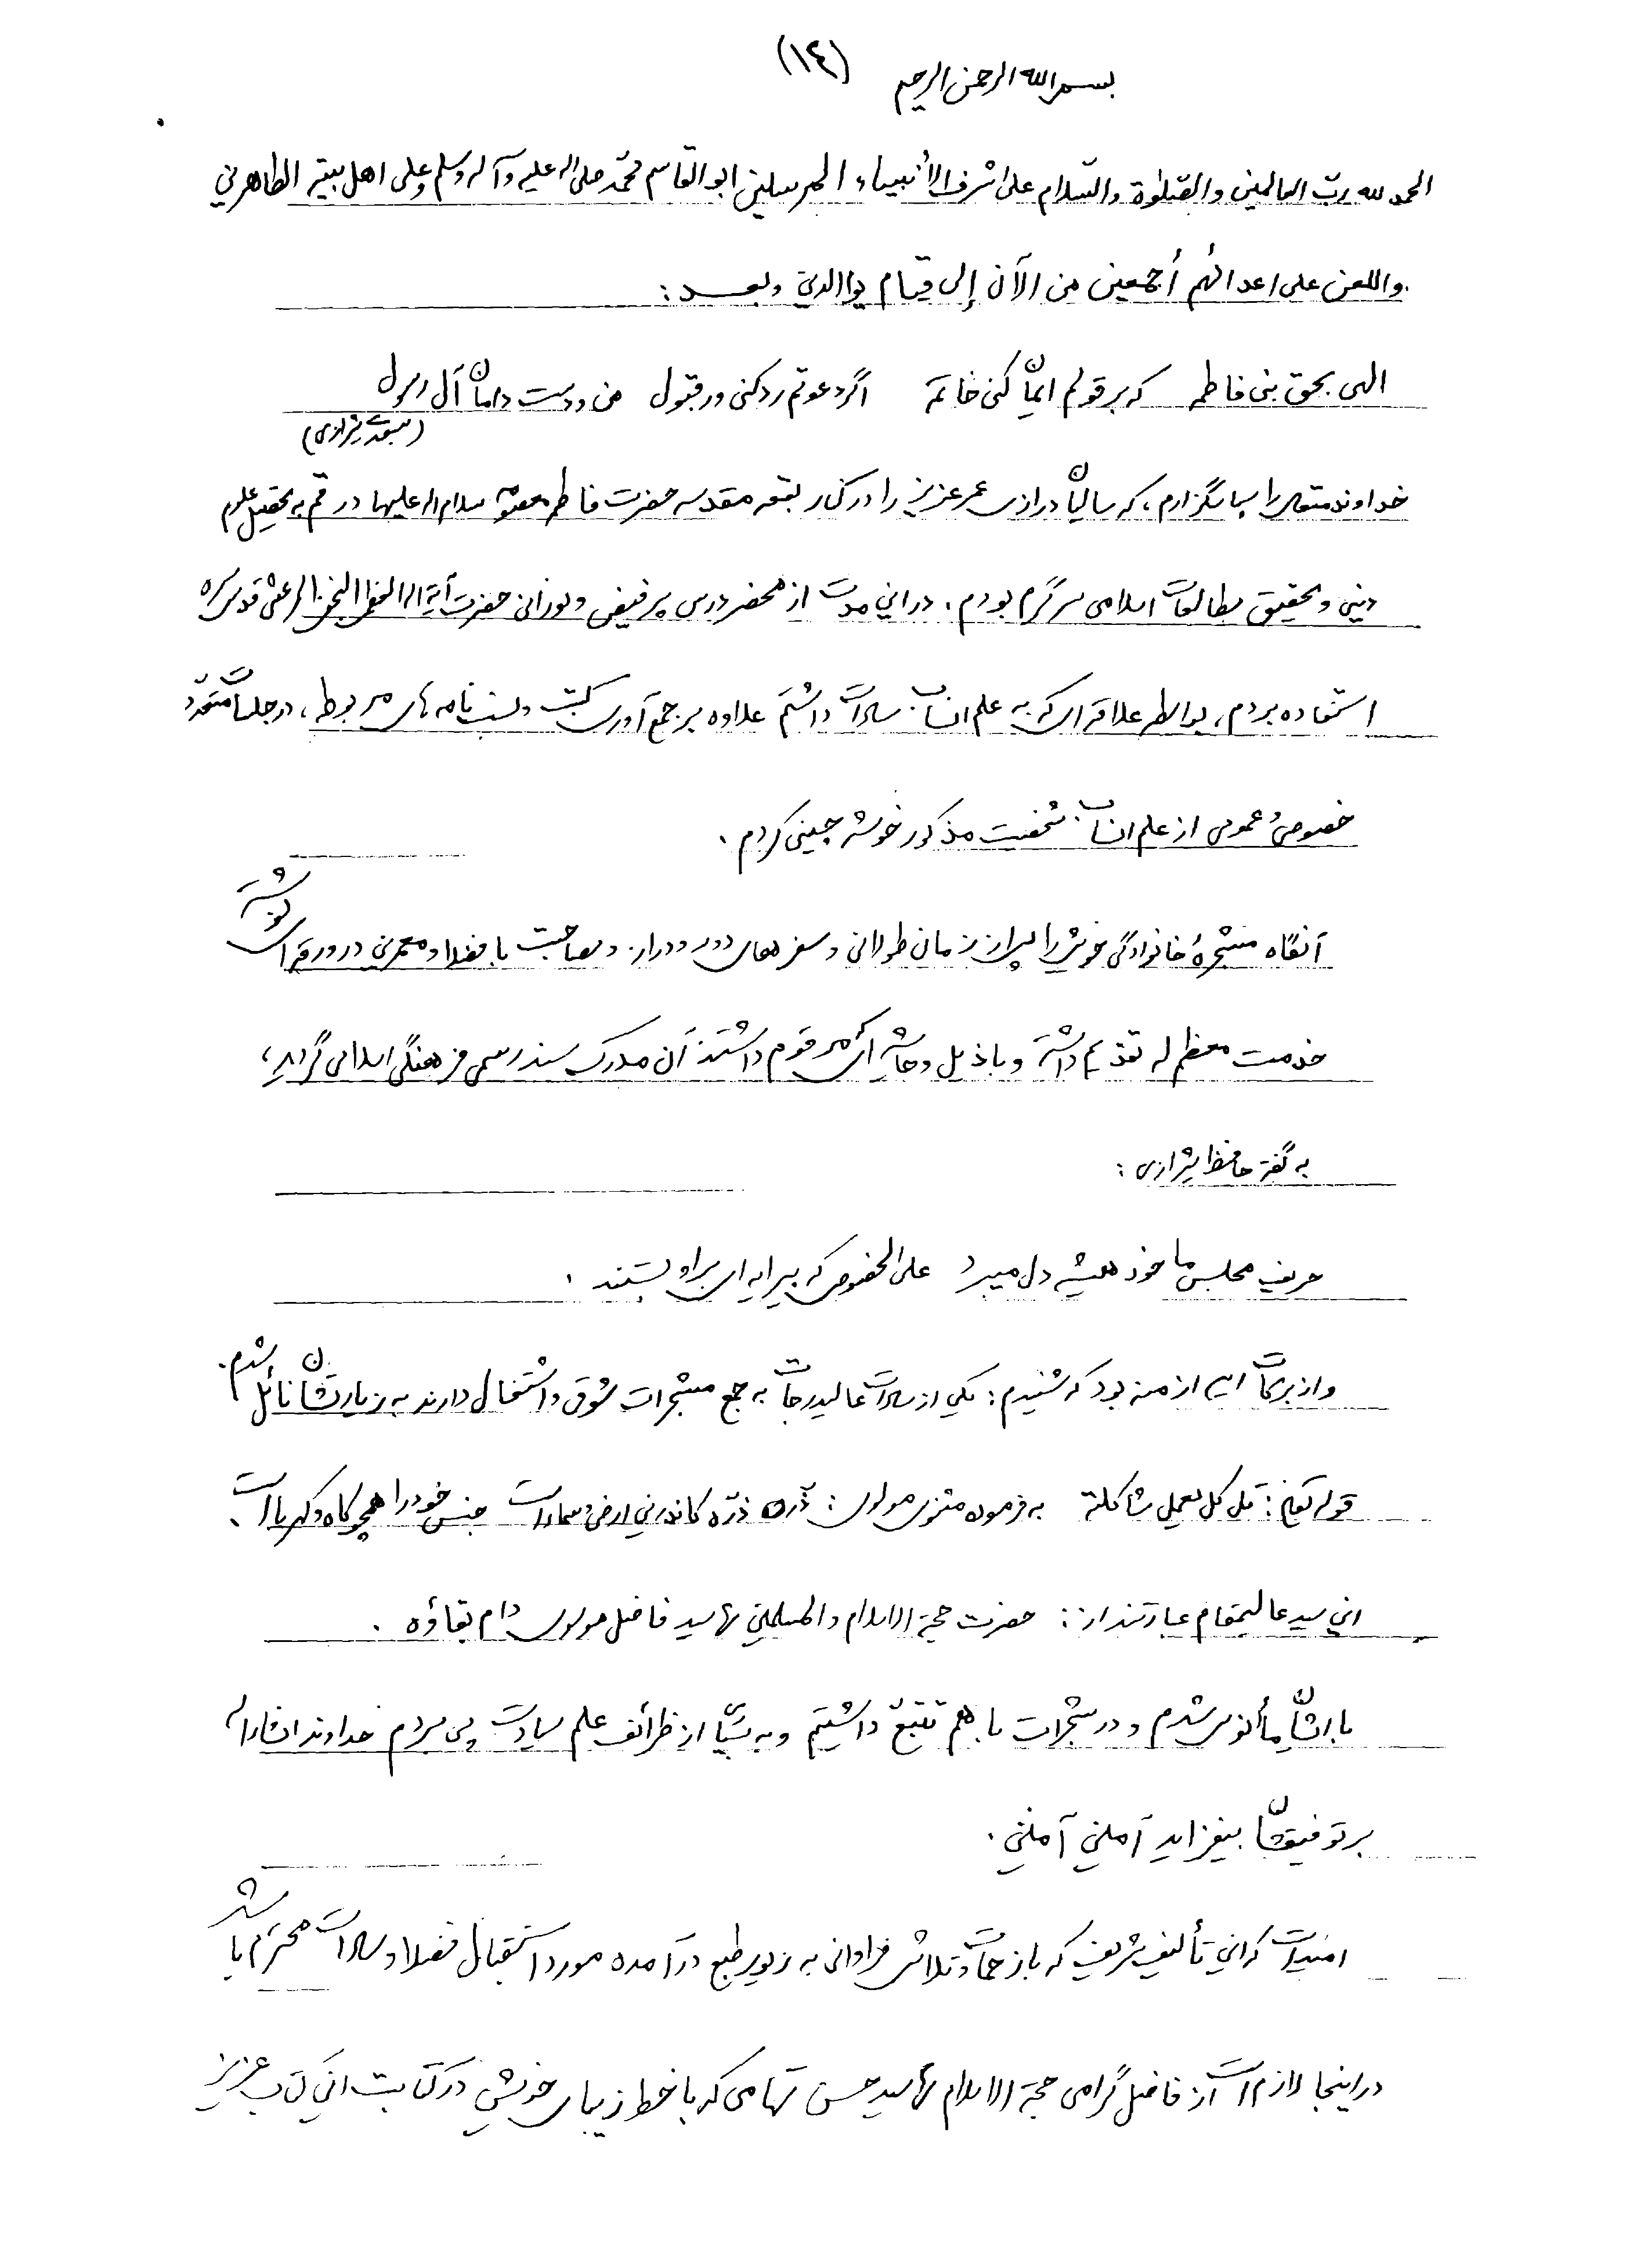 (١٤)
بسم الله الرحمن الرحیم
الحمد لله ربّ العالمین والصّلوة والسّلام علی اشرف الأنبیاء المرسلین ابو القاسم محمّد صلی اله علیه وآله وسلم وعلی اهل بیته الطاهرین
واللعن علی اعدائهم أجمعین من الآن إلی قیام یوالدین وبعد :
الهی بحق بنی فاطمه که بر قولم ایمان کنی خاتمه اگر دعوتم رد کنی ور قبول من و دست و دامان آل رسول
(سعدی شیرازی)
خداوند متعال را سپاسگزارم ، که سالیان درازی عمر عزیز را در کنار بقعه مقدسه حضرت فاطمه معصومه سلام اله علیها در قم به تحصیل علوم
دینی و تحقیق مطالعات اسلامی سرگرم بودم ، در این مدت از محضر درس پر فیض و نورانی حضرت آیة اله العظمی النجفی المرعشی قدس سره
استفاده بردم ، بواسطه علاقه‌ای که به علم انساب سادات داشتم علاوه بر جمع آوری کتب و نسب نامه های مربوطه ، در جلسات متعدد
خصوصی و عمومی از علم انساب شخصیت مذکور خوشه چینی کردم .
آنگاه مشجرهٔ خانوادگی خویش را پس از زمان طولانی و سفرهای دور و دراز و مصاحبت با فضلا و معمرین در ورقه‌ای نوشته
خدمت معظم له تقدیم داشته و با ذیل و حاشیه‌ای که مرقوم داشتند آن مدرک سند رسمی فرهنگی اسلامی گردید ،
به گفته حافظ شیرازی :
حریف مجلس ما خود همیشه دل میبرد علی الخصوص که پیرایه‌ای بر او بستند .
و از برکات این ازمنه بود که شنیدم : یکی از سادات عالیدرجات به جمع مشجرات شوق و اشتغال دارند به زیارتشان نائل شدم .
قوله تعالی : قل کل یعمل شاکلته به فرموده مثنوی مولوی : ذره ذرّه کاندرین ارض و سماست جنس خود را همچو کاه و کهرباست .
این سید عالیمقام عبارتند از : حضرت حجة الاسلام والمسلمین آقا سید فاضل مولوی دام بقاؤه .
با ایشان مأنوس شدم و در مشجرات با هم تتبّع داشتیم و به بسیاری از ظرائف علم سیادت پی بردم خداوند انشاء اله
بر توفیقشان بیفزاید آمین آمین .
امید است که این تألیف شریف که با زحمات و تلاش فراوانی به زیور طبع در آمده مورد استقبال فضلا و سادات محترم باشد
در اینجا لازم است از فاضل گرامی حجة الاسلام آقا سید حسن تهامی که با خط زیبای خویش در کتابت این کتاب عزیز